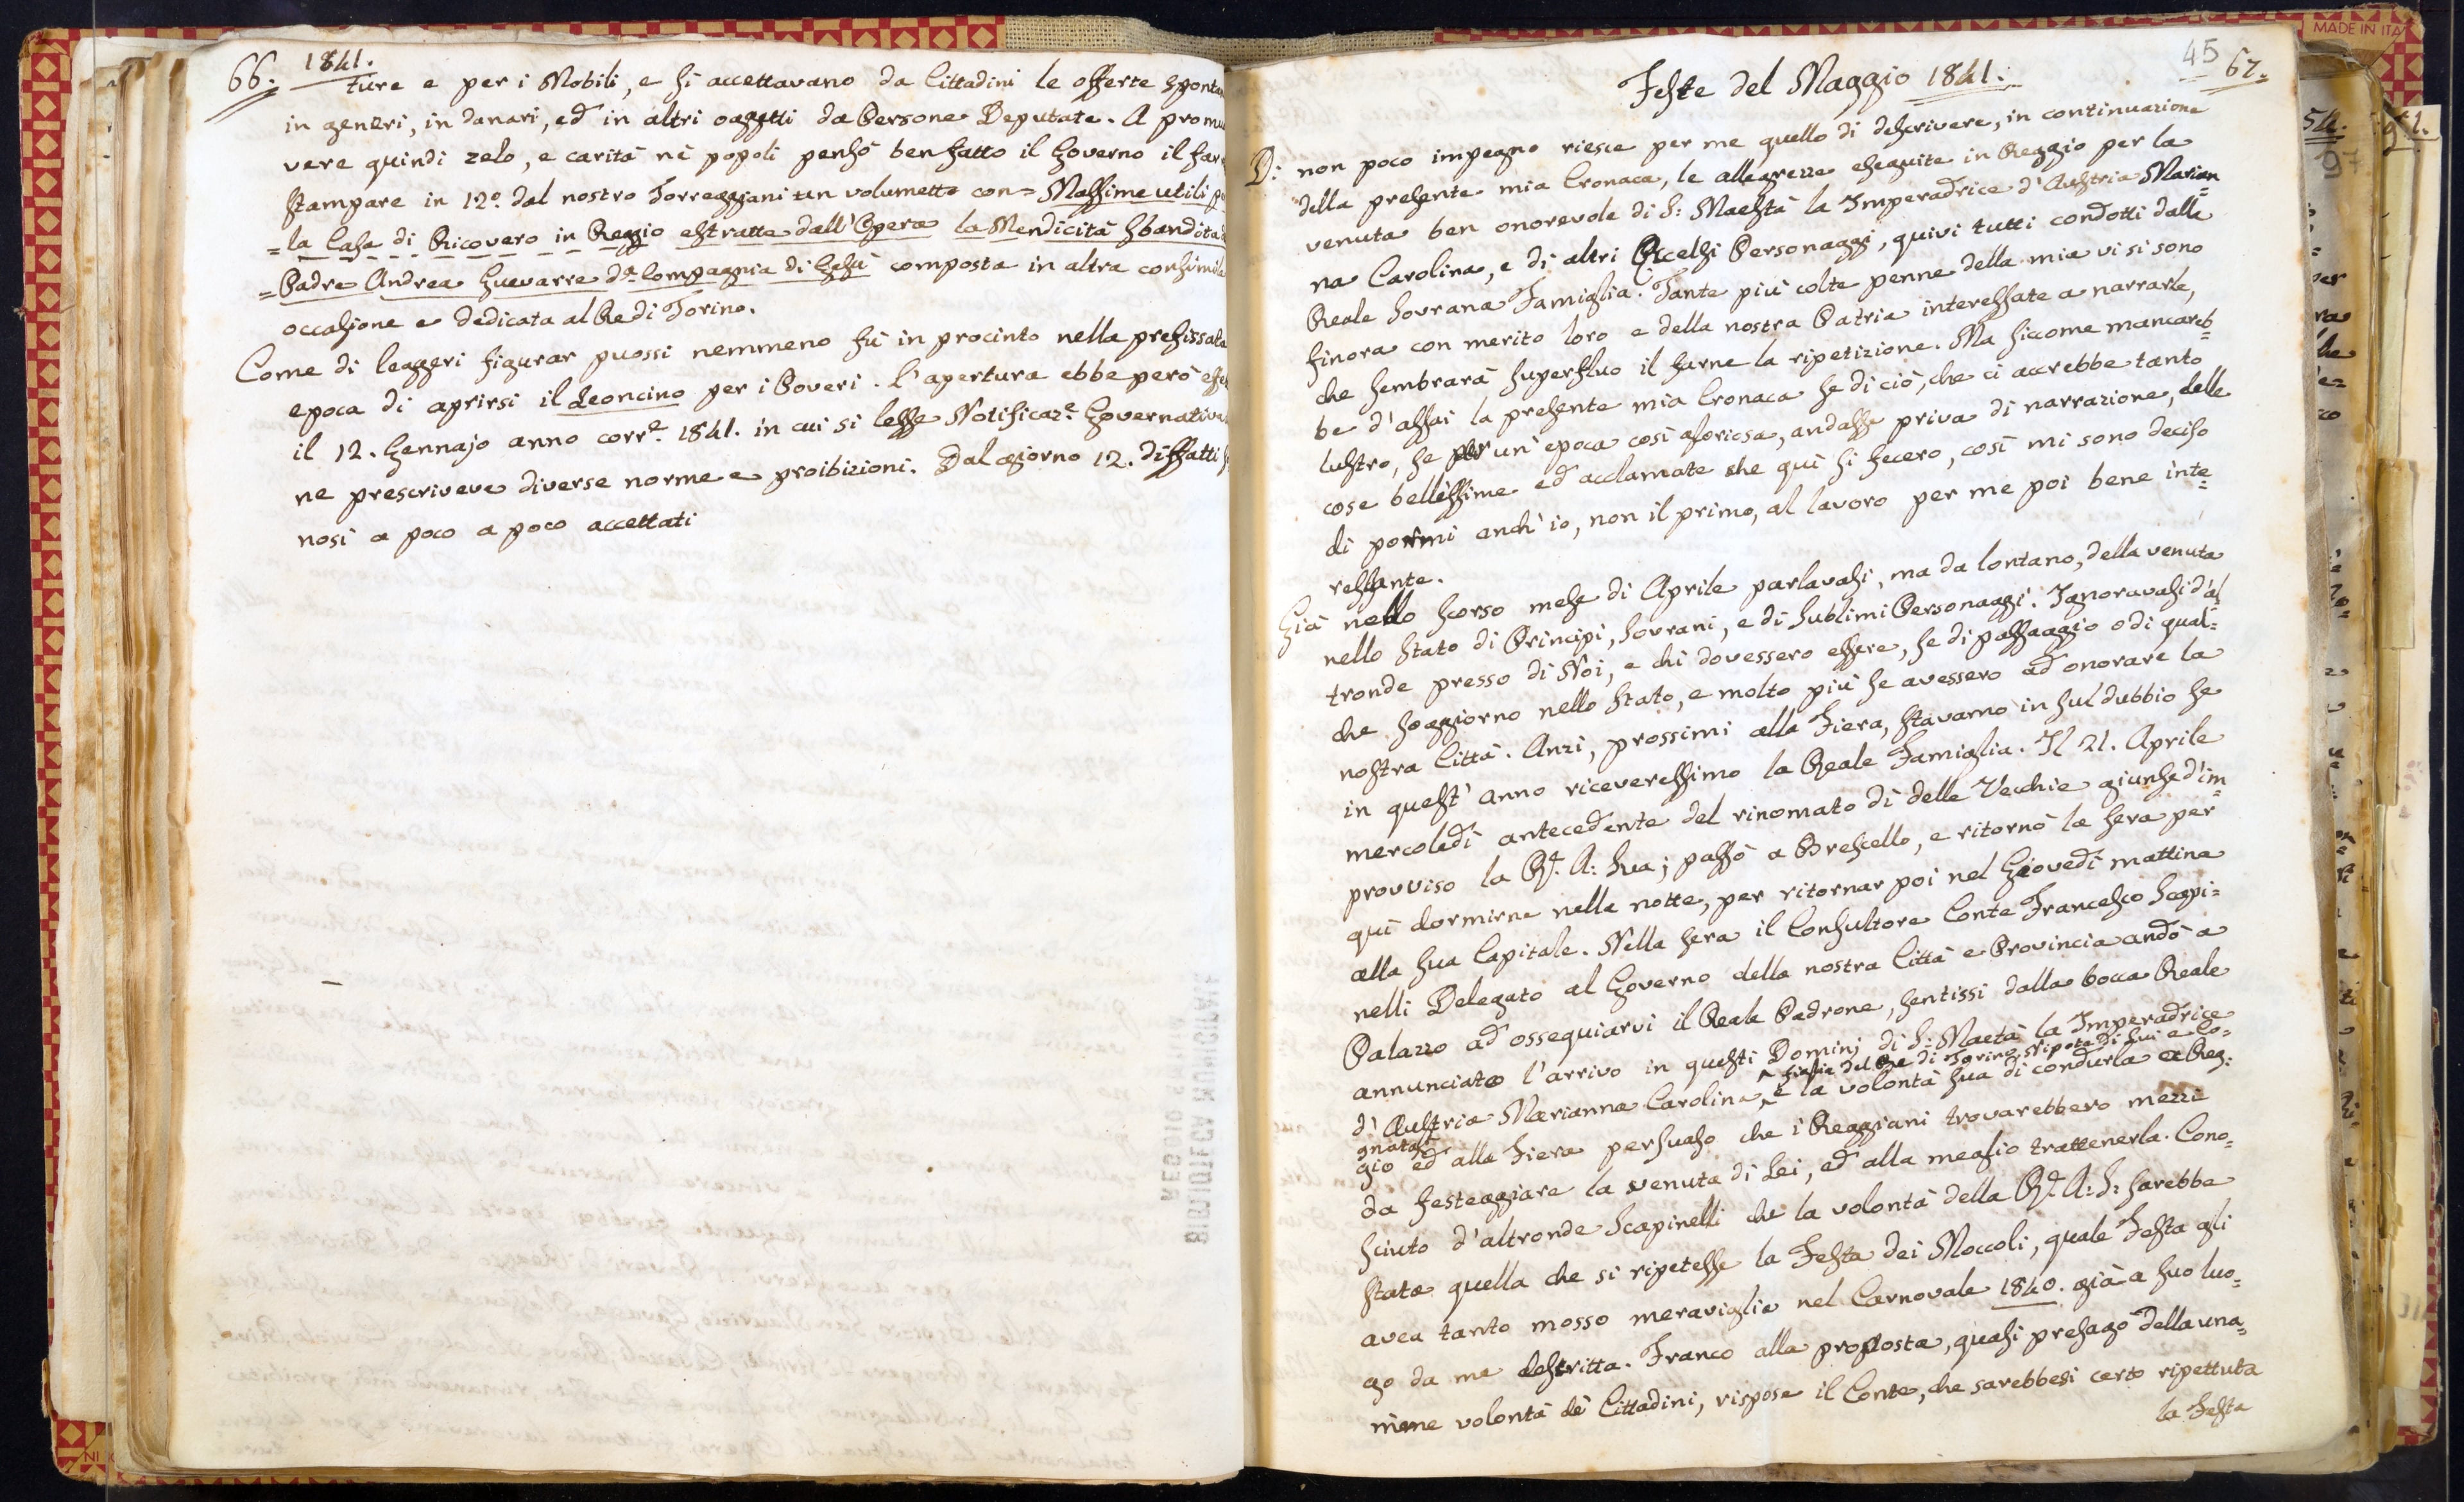 66. 1841.
ture e per i Mobili, e si accettavano da Cittadini le offerte sponta
in generi, in danari, ed in altri oggetti da Persone Deputate. A promu
vere quindi zelo, e carità nè popoli pensò ben fatto il Governo il far
stampare in 12º. dal nostro Torreggiani un volumetto con = Massime utili p
= la Casa di Ricovero in Reggio estratte dall'Opera la Mendicità sbandita
= Padre Andrea Guevarre dª Compagnia di Gesù composta in altra consimile
occasione e dedicata al Re di Torino.
Come di leggeri figurar puossi nemmeno fù in procinto nella prefissata
epoca di aprirsi il Leoncino per i Poveri. L'apertura ebbe però effe
il 12. Gennajo anno corrᵉ. 1841. in cui si lesse Notificazᵉ. Governativa
ne prescriveva diverse norme e proibizioni. Dal giorno 12. diffatti
nosi a poco a poco accettati
45
67.
Feste del Maggio 1841.
Di non poco impegno riesce per me quello di descrivere, in continuazione
della presente mia Cronaca, le allegrezze eseguite in Reggio per la
venuta ben onorevole di S: Maestà la Imperadrice d'Austria Marian=
na Carolina, e di altri Eccelsi Personaggi, quivi tutti condotti dalla
Reale Sovrana Famiglia. Tante più colte penne della mia vi si sono
finora con merito loro e della nostra Patria interessate a narrarle,
che sembrarà superfluo il farne la ripetizione. Ma siccome mancareb=
be d'assai la presente mia Cronaca se di ciò, che ci accrebbe tanto
lustro, se per un'epoca così gloriosa, andasse priva di narrazione, delle
cose bellissime ed acclamate che quì si fecero, così mi sono deciso
di pormi anch'io, non il primo, al lavoro per me poi bene inte=
ressante.
Già nello scorso mese di Aprile parlavasi, ma da lontano, della venuta
nello Stato di Principi, Sovrani, e di Sublimi Personaggi. Ignoravasi d'al=
tronde presso di Noi, e chi dovessero essere, se di passaggio o di qual=
che soggiorno nello Stato, e molto più se avessero ad onorare la
nostra Città. Anzi, prossimi alla Fiera, stavamo in sul dubbio se
in quest'anno riceveressimo la Reale Famiglia. Il 21. Aprile
mercoledì antecedente del rinomato dì delle Vecchie giunse d'im=
provviso la R. A: Sua; passò a Brescello, e ritornò la sera per
quì dormirne nella notte, per ritornar poi nel Giovedì mattina
alla sua Capitale. Nella sera il Consultore Conte Francesco Scapi=
nelli Delegato al Governo della nostra Città e Provincia andò a
Palazzo ad ossequiarvi il Reale Padrone, sentissi dalla bocca Reale
annunciato l'arrivo in questi Dominj di S: Maetà la Imperadrice
^ figlia del Re di Torino Nipote di Lui e Co=
d'Austria Marianna Carolina, ^ e la volontà sua di condurla a Reg:
gnata
gio ed alla Fiera persuaso che i Reggiani trovarebbero mezzi
da festeggiare la venuta di Lei, ed alla meglio trattenerla. Cono=
sciuto d'altronde Scapinelli che la volontà della R. A: S: sarebbe
stata quella che si ripetesse la Festa dei Moccoli, quale Festa gli
avea tanto mosso meraviglia nel Carnovale 1840. già a suo luo=
go da me descritta. Franco alla proposta, quasi presago della una=
nime volontà dè Cittadini, rispose il Conte, che sarebbesi certo ripettuta
la Festa
REGGIO
BIBLIOTECA MUNICIPALE
MADE IN ITA